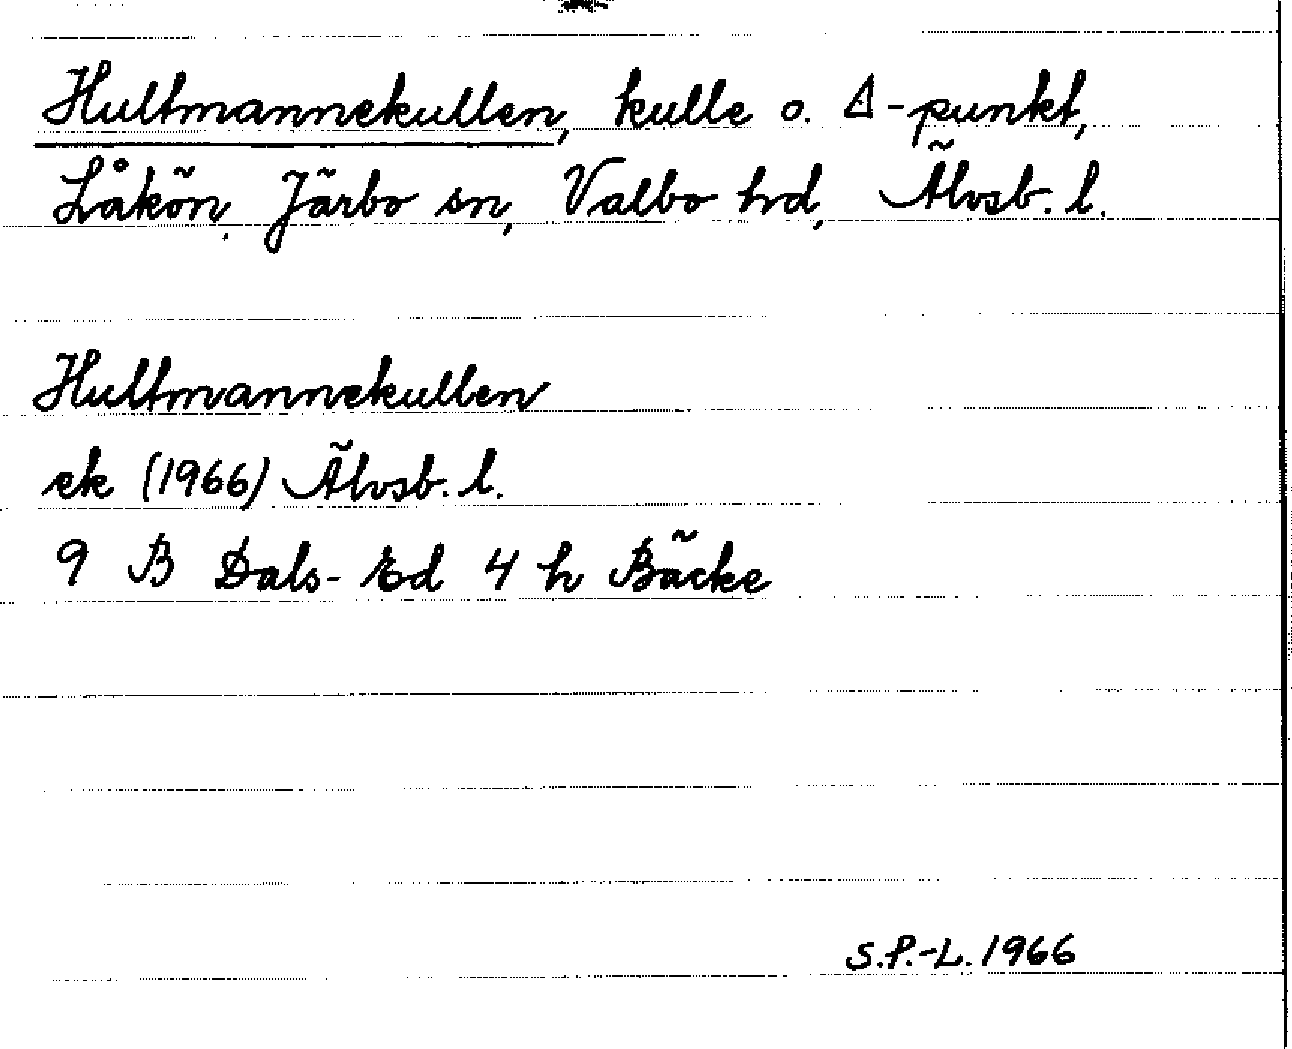 Hultmannekullen, kulle o. Δ-punkt,
Låkön, Järbo sn, Valbo hd, Älvsb. l.
Hultmannekullen
ek (1966) Älvsb. l.
9 B Dals-Ed 4 h Bäcke
S.P.-L. 1966